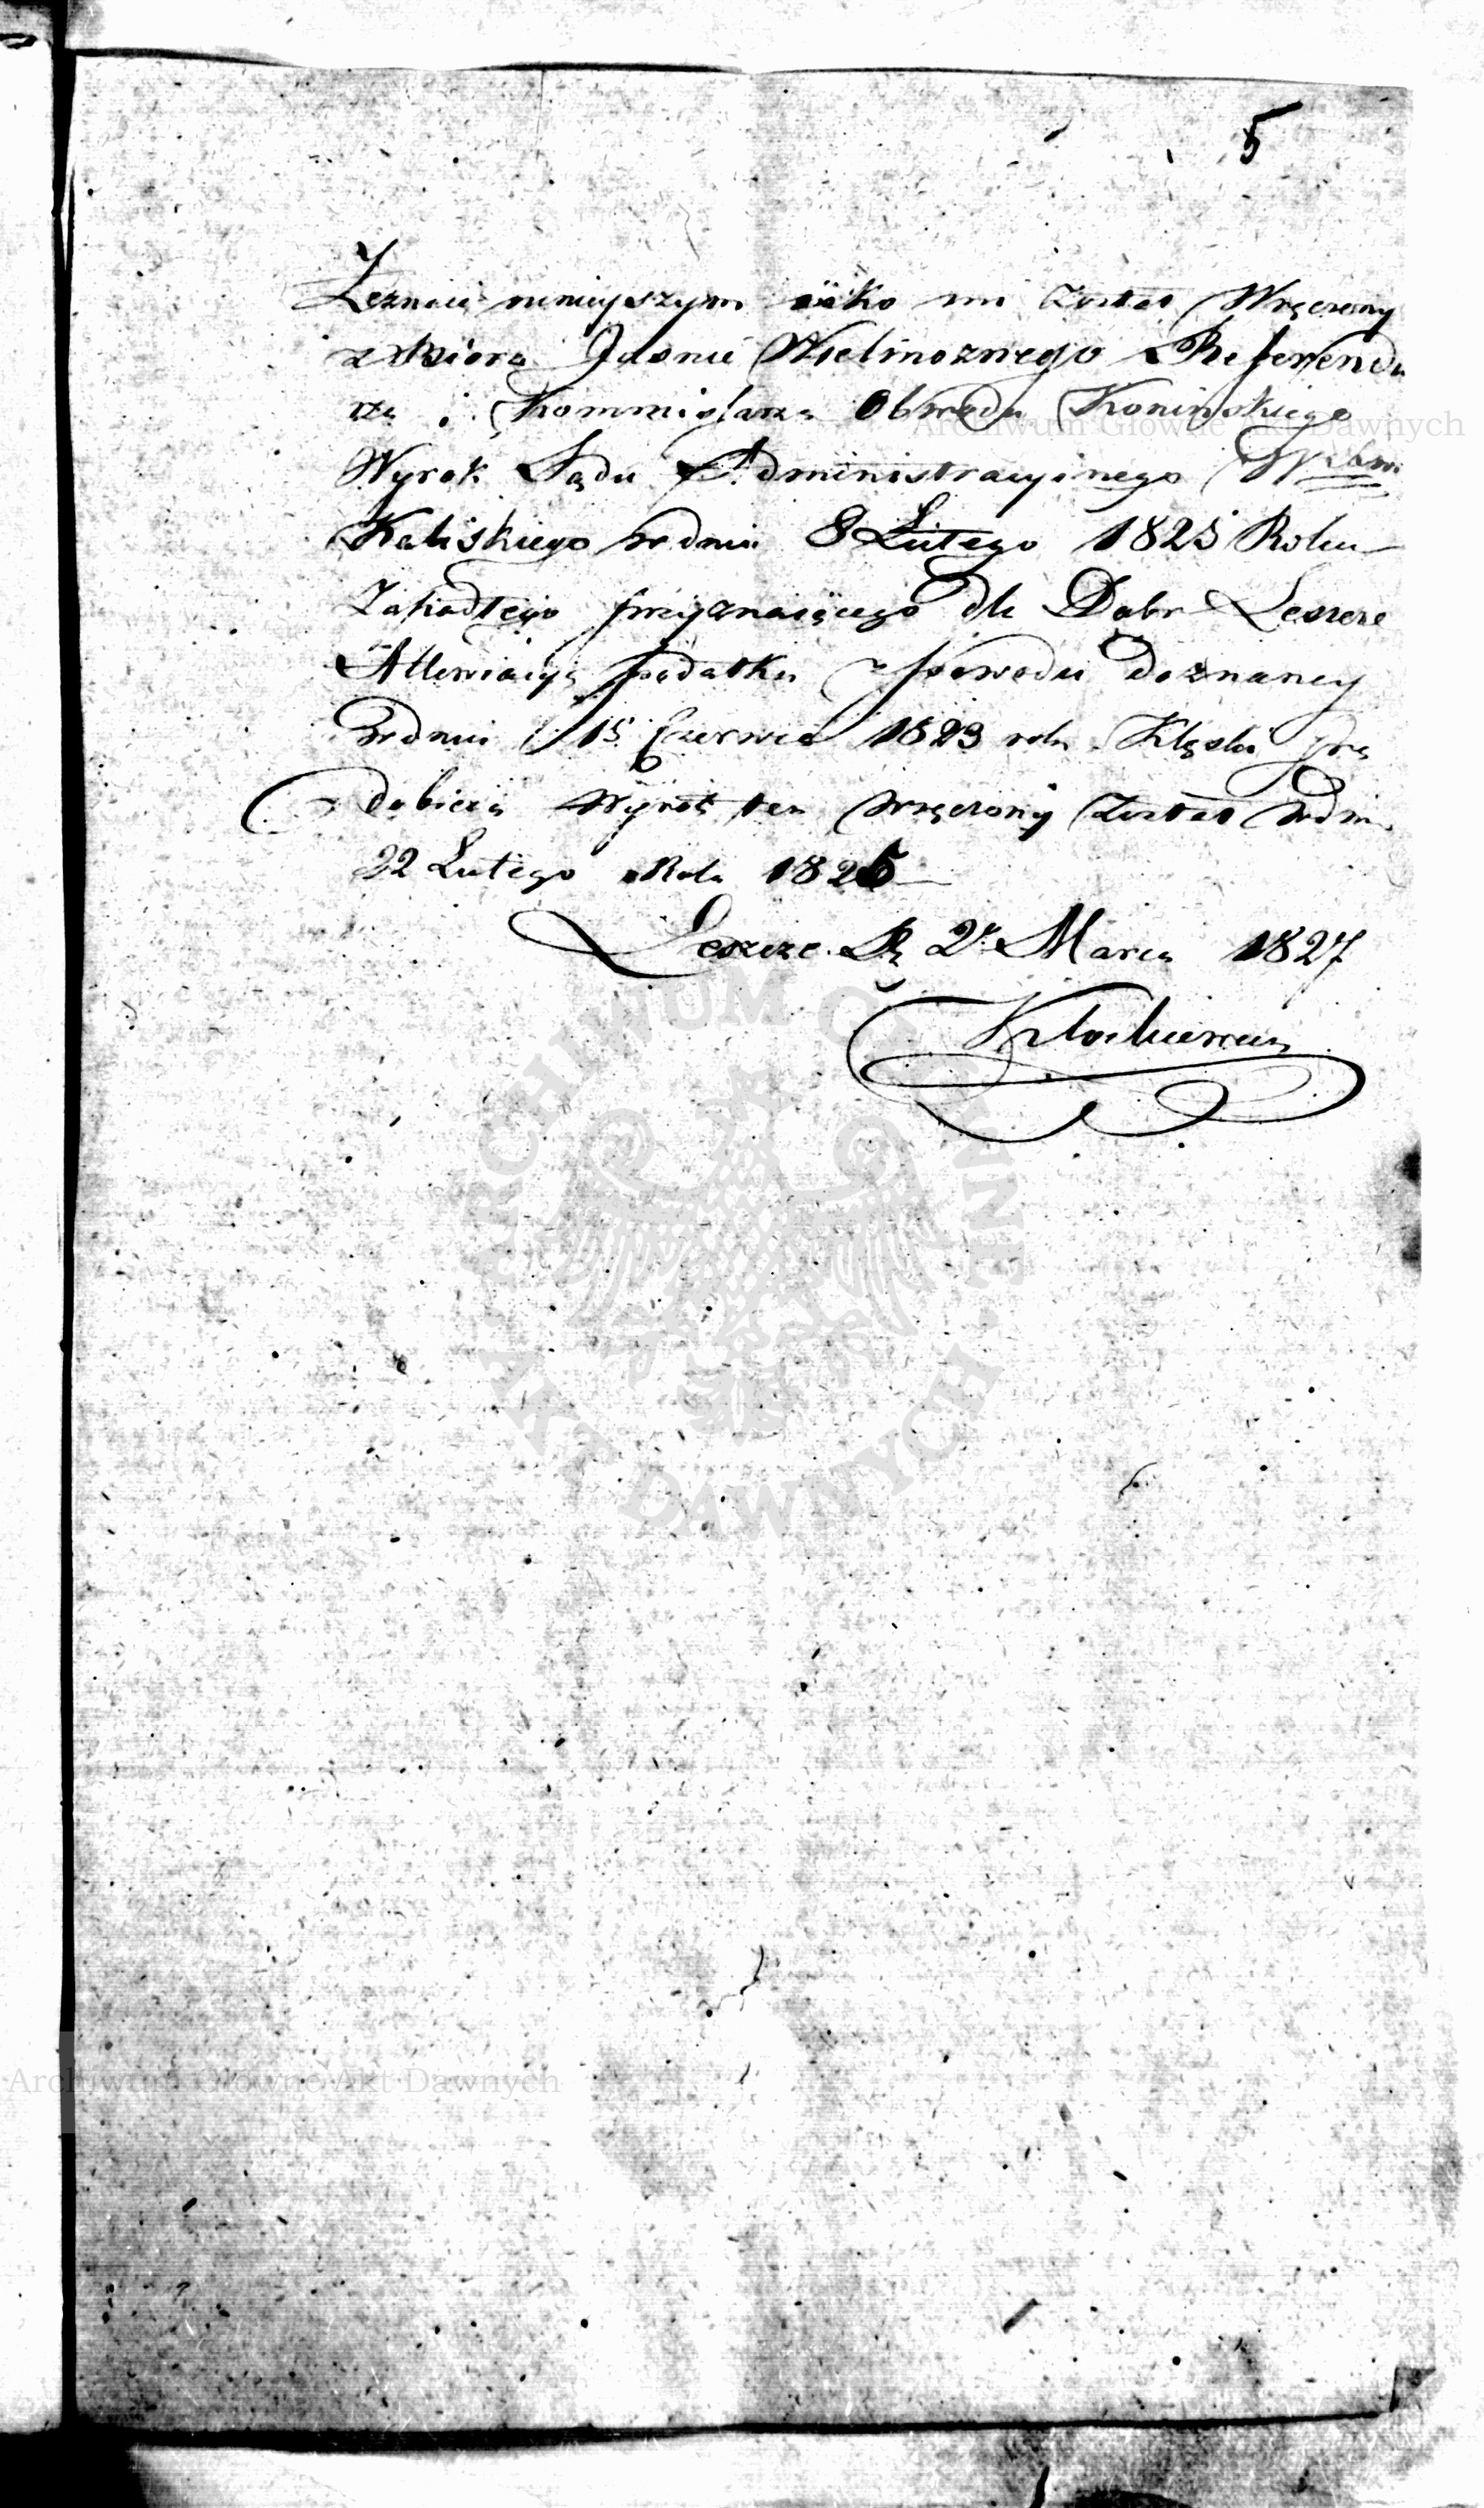 5
Zeznaię niniejszym iäko mi został Wręczony
z Biora Jasnie Wielmoznego Referenda
rza i Kommissarza Obwodu Konińskiego
Archiwum Główne Akt Dawnych
Wyrok Sądu Administracyinego
Kaliskiego w dniu 8 Lutego 1825 Roku
Zapadłego przyznaiącego dla Dobr Leszcze
Allewiacyą podatku z powodu doznaney
w dniu 15 Czerwca 1823 roku Klęski
Wyrok ten wręczony został w dniu
22 Lutego Roku 1825
Leszcze D. 2 Marca 1827
ARCHIWUM GŁÓWNE AKT DAWNYCH
Archiwum Główne Akt Dawnych